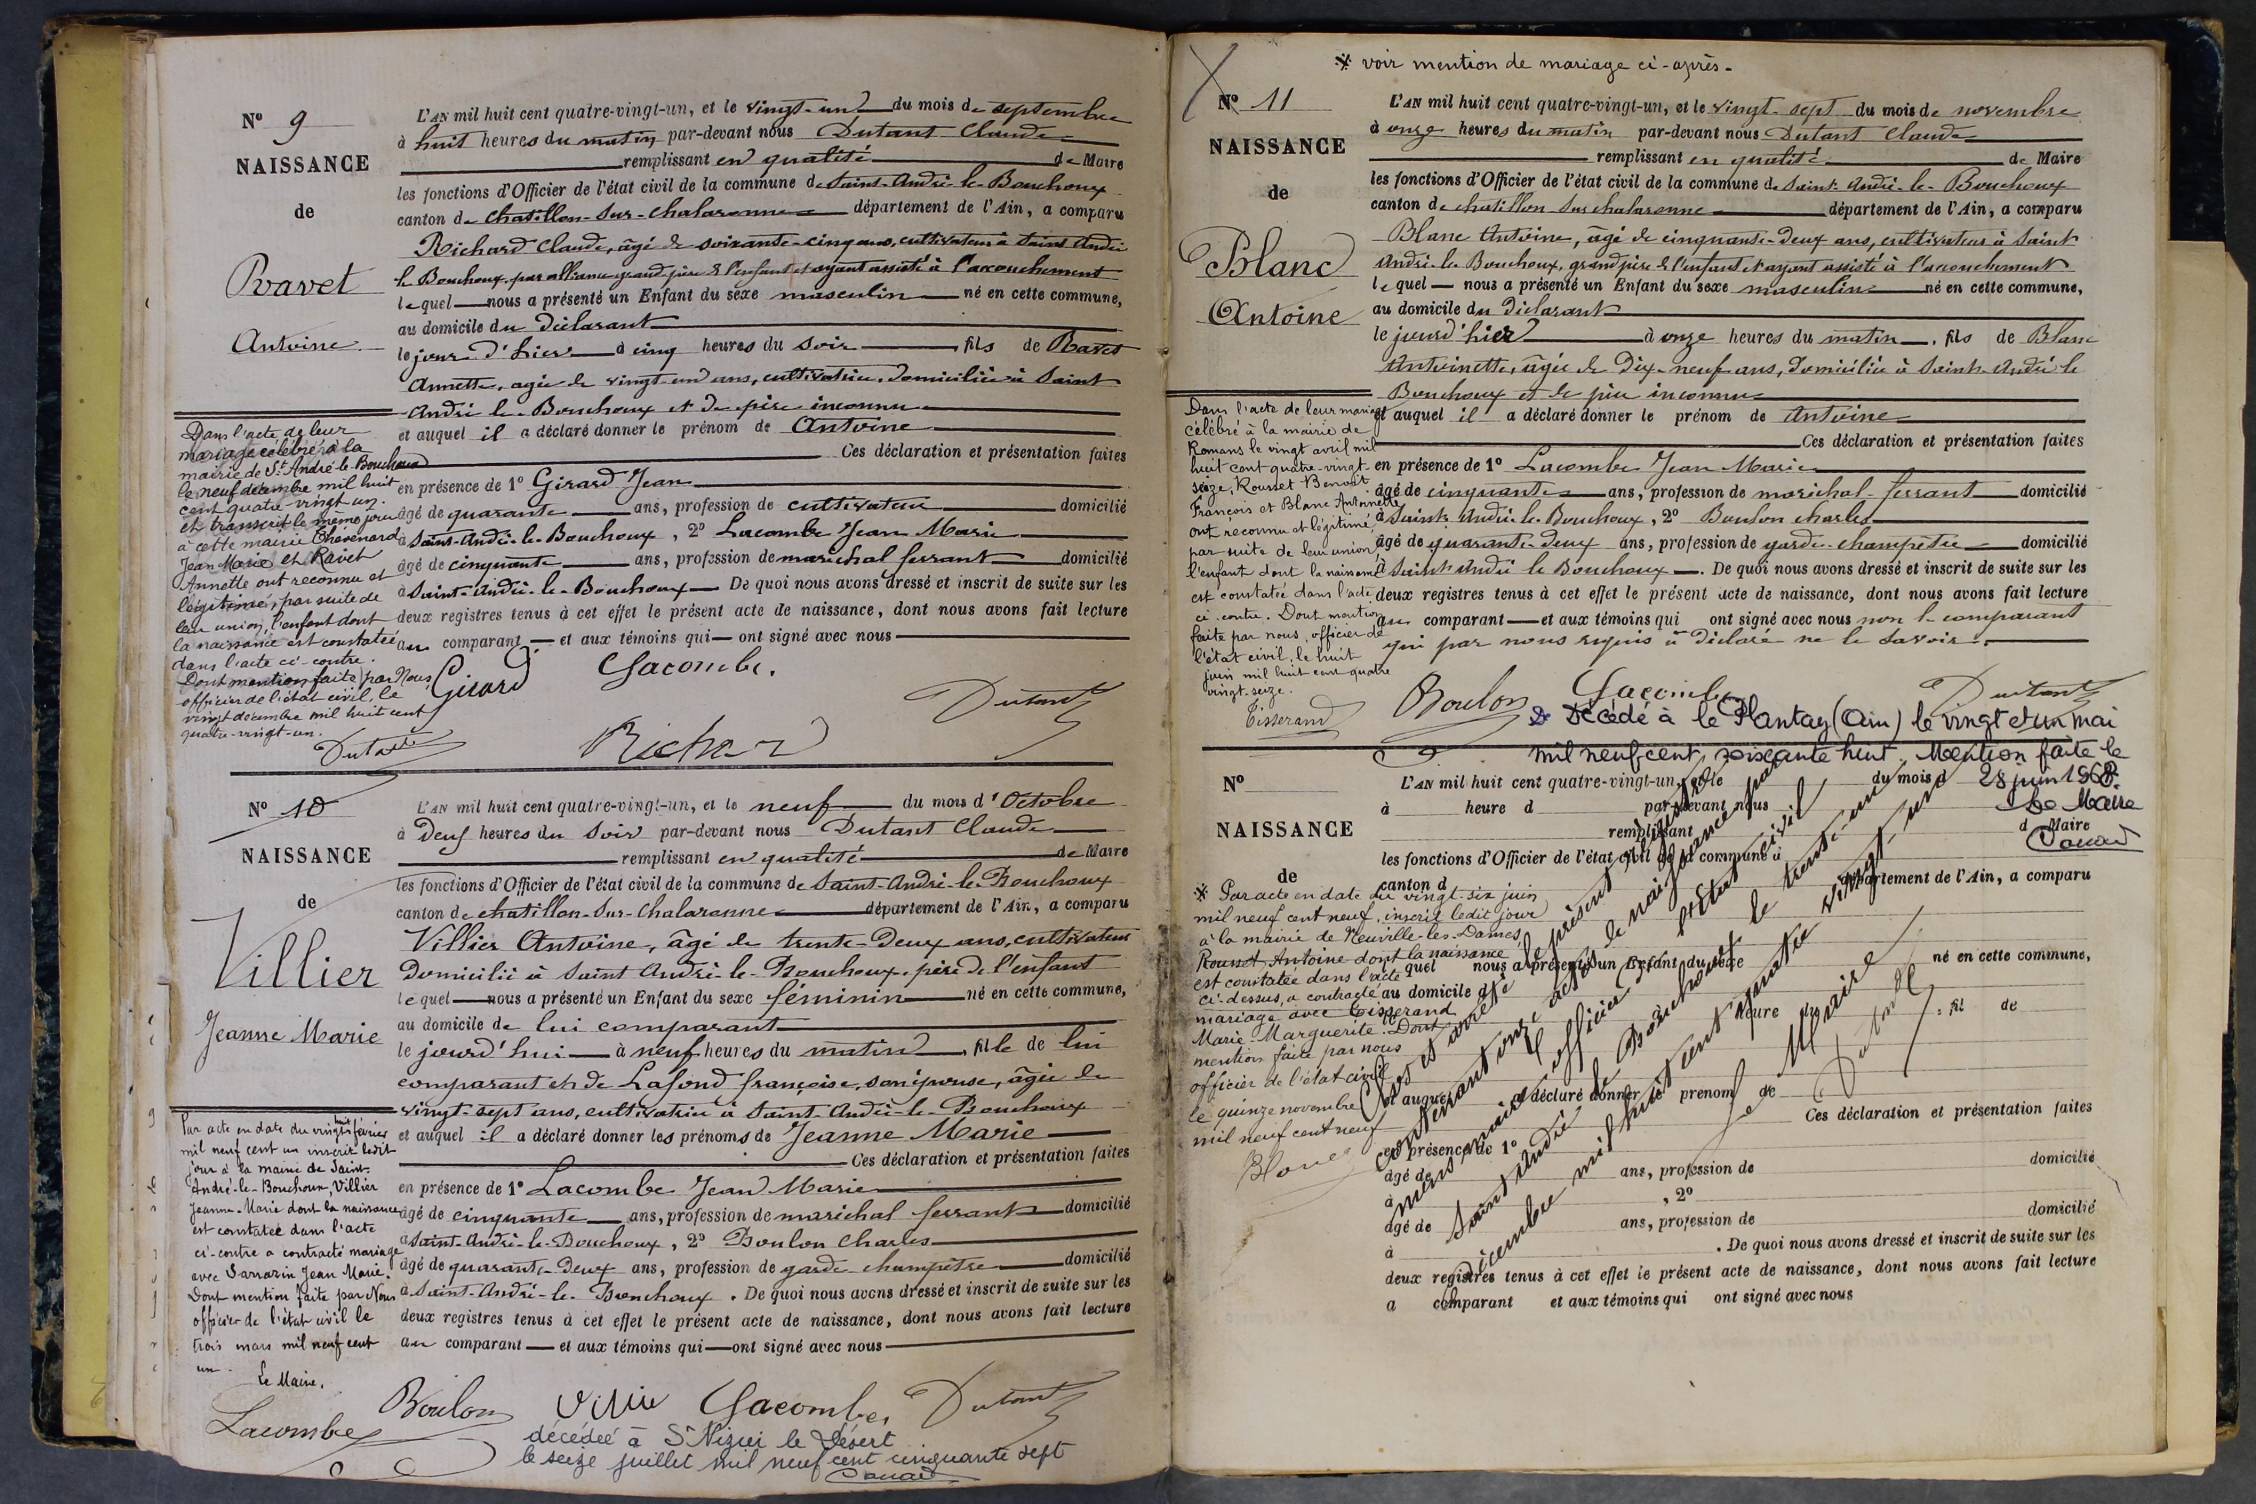 N° 9
NAISSANCE
de
Ravet
Antoine
L'AN mil huit cent quatre-vingt-un, et le vingt-un du mois de septembre
à huit heures du matin par-devant nous Dutant Claude
remplissant en qualité de Maire
les fonctions d'Officier de l'état civil de la commune de Saint-André-le-Bouchoux
canton de Chatillon-sur-Chalaronne département de l'Ain, a comparu
Richard Claude, âgé de soixante-cinq ans, cultivateur à Saint André
le Bouchoux, par alliance grand-père de l'enfant et ayant assisté à l'accouchement
lequel nous a présenté un Enfant du sexe masculin né en cette commune,
au domicile du déclarant
le jour d'hier à cinq heures du soir, fils de Ravet
Annette, agée de vingt-un ans, cultivatrice, domiciliée à Saint
André le Bouchoux et de père inconnu
et auquel il a déclaré donner le prénom de Antoine
Ces déclaration et présentation faites
en présence de 1° Girard Jean
âgé de quarante ans, profession de cultivateur domicilié
à Saint-André-le-Bouchoux, 2° Lacombe Jean Marie
âgé de cinquante ans, profession de maréchal ferrant domicilié
à Saint-André-le-Bouchoux De quoi nous avons dressé et inscrit de suite sur les
deux registres tenus à cet effet le présent acte de naissance, dont nous avons fait lecture
au comparant et aux témoins qui ont signé avec nous
Girard Lacombe. Dutant
Richard
Dans l'acte de leur
mariage célébré à la
mairie de St André-le-Bouchoux
le neuf décembre mil huit
cent quatre vingt un.
et transcrit le même jour
à cette mairie Chevenard
Jean Marie et Ravet
Annette ont reconnu et
légitimé, par suite de
leur union, l'enfant dont
la naissance est constatée
dans l'acte ci-contre.
Dont mention faite par Nous
officier de l'état civil, le
vingt décembre mil huit cent
quatre-vingt-un.
Dutant
N° 10
NAISSANCE
de
Villier
Jeanne Marie
L'AN mil huit cent quatre-vingt-un, et le neuf du mois d'Octobre
à Deux heures du soir par-devant nous Dutant Claude
remplissant en qualité de Maire
les fonctions d'Officier de l'état civil de la commune de Saint-André-le-Bouchoux
canton de chatillon-sur-Chalaronne département de l'Ain, a comparu
Villier Antoine, âgé de trente-Deux ans, cultivateur
Domicilié à Saint André-le-Bouchoux, père de l'enfant
lequel nous a présenté un Enfant du sexe féminin né en cette commune,
au domicile de lui comparant
le jourd'hui à neuf heures du matin, fille de lui
comparant et de Lafond françoise, son épouse, âgée de
vingt-sept ans, cultivatrice à Saint-André-le-Bouchoux
et auquel il a déclaré donner les prénoms de Jeanne Marie
Ces déclaration et présentation faites
en présence de 1° Lacombe Jean Marie
âgé de cinquante ans, profession de maréchal ferrant domicilié
à Saint-André-le-Bouchoux, 2° Boulon Charles
âgé de quarante-Deux ans, profession de garde champêtre domicilié
à Saint-André-le-Bouchoux. De quoi nous avons dressé et inscrit de suite sur les
deux registres tenus à cet effet le présent acte de naissance, dont nous avons fait lecture
au comparant et aux témoins qui ont signé avec nous
Boulon Villie Lacombe, Dutant
décédée à St Nizier le Désert
le seize juillet mil neuf cent cinquante sept
Par acte en date du vingt huit février
mil neuf cent un inscrit ledit
jour à la mairie de Saint-
André-le-Bouchoux, Villier
Jeanne-Marie dont la naissance
est constatée dans l'acte
ci-contre a contracté mariage
avec Sarrazin Jean Marie.
Dont mention faite par Nous
officier de l'état civil le
trois mars mil neuf cent
un.
Le Maire,
Lacombe
* voir mention de mariage ci-après.
N° 11
NAISSANCE
de
Blanc
Antoine
L'AN mil huit cent quatre-vingt-un, et le vingt-sept du mois de novembre
à onze heures du matin par-devant nous Dutant Claude
remplissant en qualité de Maire
les fonctions d'Officier de l'état civil de la commune de Saint-André-le-Bouchoux
canton de chatillon sur chalaronne département de l'Ain, a comparu
Blanc Antoine, âgé de cinquante-Deux ans, cultivateur à Saint
André-le-Bouchoux, grand père de l'enfant et ayant assisté à l'accouchement
lequel nous a présenté un Enfant du sexe masculin né en cette commune,
au domicile du déclarant
le jourd'hier à onze heures du matin, fils de Blanc
Antoinette, âgée de Dix-neuf ans, domiciliée à Saint-André le
Bouchoux et de père inconnu
et auquel il a déclaré donner le prénom de Antoine
Ces déclaration et présentation faites
en présence de 1° Lacombe Jean Marie
âgé de cinquante ans, profession de maréchal-ferrant domicilié
à Saint-André-le-Bouchoux, 2° Boulon charles
âgé de quarante-deux ans, profession de garde-champêtre domicilié
à Saint-André le Bouchoux. De quoi nous avons dressé et inscrit de suite sur les
deux registres tenus à cet effet le présent acte de naissance, dont nous avons fait lecture
au comparant et aux témoins qui ont signé avec nous non le comparant
qui par nous requis a déclaré ne le savoir.
Boulon Lacombe Dutant
Dans l'acte de leur mariage
célébré à la mairie de
Romans le vingt avril mil
huit cent quatre-vingt-
seize, Rousset Benoit
François et Blanc Antoinette
ont reconnu et légitimé,
par suite de leur union
l'enfant dont la naissance
est constatée dans l'acte
ci-contre. Dont mention
faite par nous, officier de
l'état civil, le huit
juin mil huit cent quatre
vingt-seize.
Tisserand
Décédé à le Plantay (Ain) le vingt et un mai
mil neuf cent soixante huit. Mention faite le
28 juin 1968.
Le Maire
N°
NAISSANCE
de
L'AN mil huit cent quatre-vingt-un, et le du mois d
à heure d par-devant nous
remplissant d Maire
les fonctions d'Officier de l'état civil de la commune d
canton d département de l'Ain, a comparu
quel nous a présenté un Enfant du sexe né en cette commune,
au domicile d
heure d, fil de
et auquel a déclaré donner prénom de
Ces déclaration et présentation faites
en présence de 1°
âgé de ans, profession de domicilié
à, 2°
âgé de ans, profession de domicilié
à. De quoi nous avons dressé et inscrit de suite sur les
deux registres tenus à cet effet le présent acte de naissance, dont nous avons fait lecture
a comparant et aux témoins qui ont signé avec nous
Clos et arrêté le présent registre
contenant onze actes de naissance par
nous maire officier de l'état civil
Saint André le Bouchoux le trente-un
décembre mil huit cent quatre vingt-un
Le Maire
Dutant
* Par acte en date du vingt-six juin
mil neuf cent neuf, inscrit ledit jour
à la mairie de Neuville-les-Dames
Rousset Antoine dont la naissance
est constatée dans l'acte
ci-dessus, a contracté
mariage avec Tisserand
Marie-Marguerite. Dont
mention faite par nous
officier de l'état civil
le quinze novembre
mil neuf cent neuf